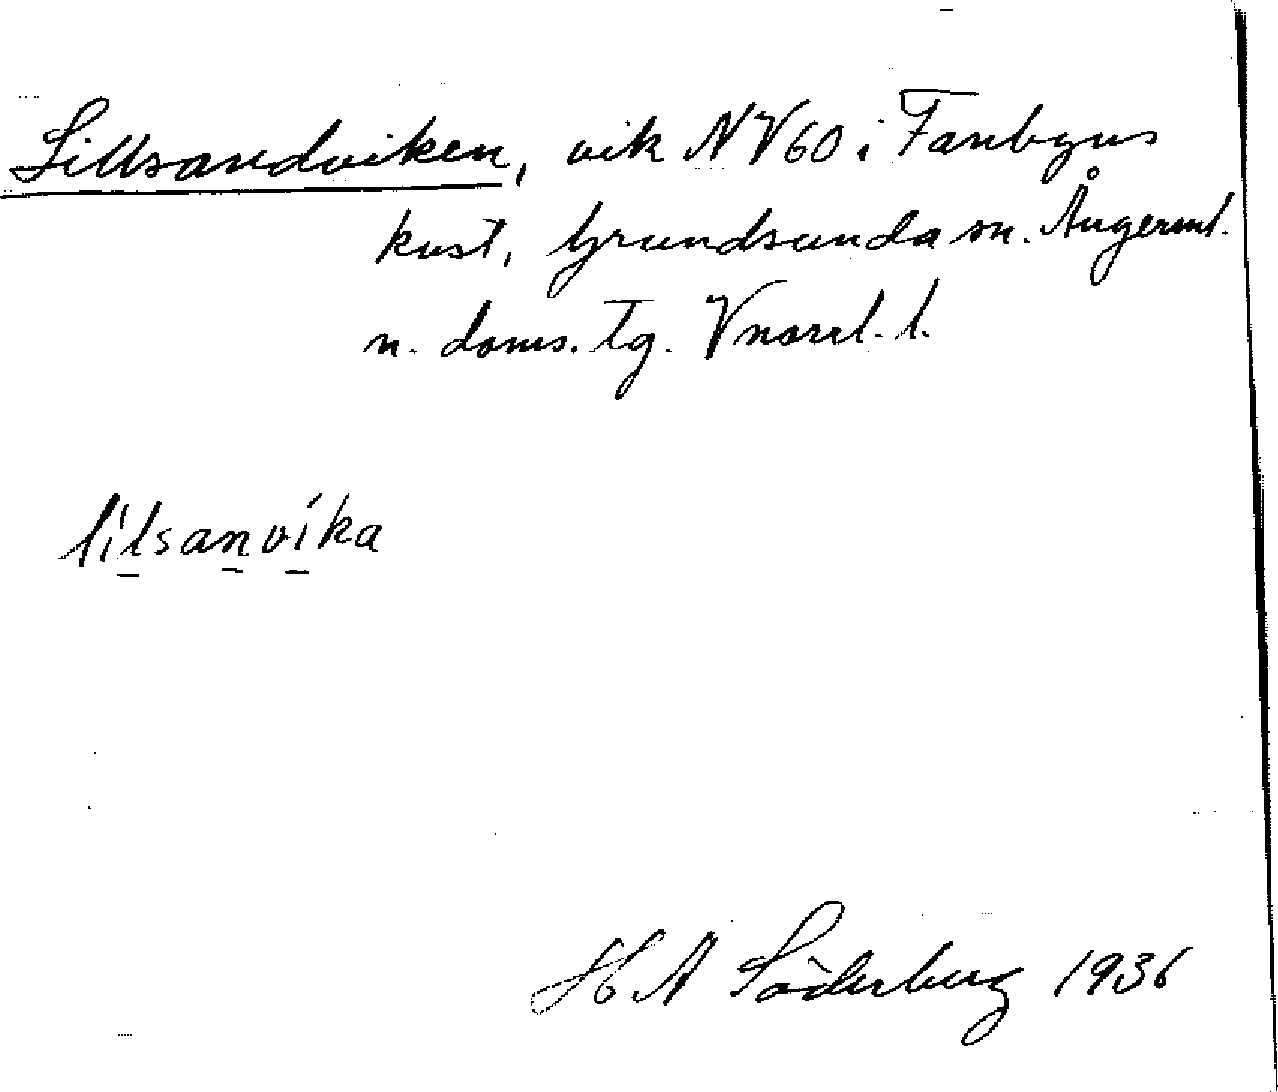 Lillsandviken, vik NV60 i Fanbyns
kust, Grundsunda sn. Ångerml.
n. doms. tg. Vnorrl. l.
lilsanvika
H A Söderberg 1936